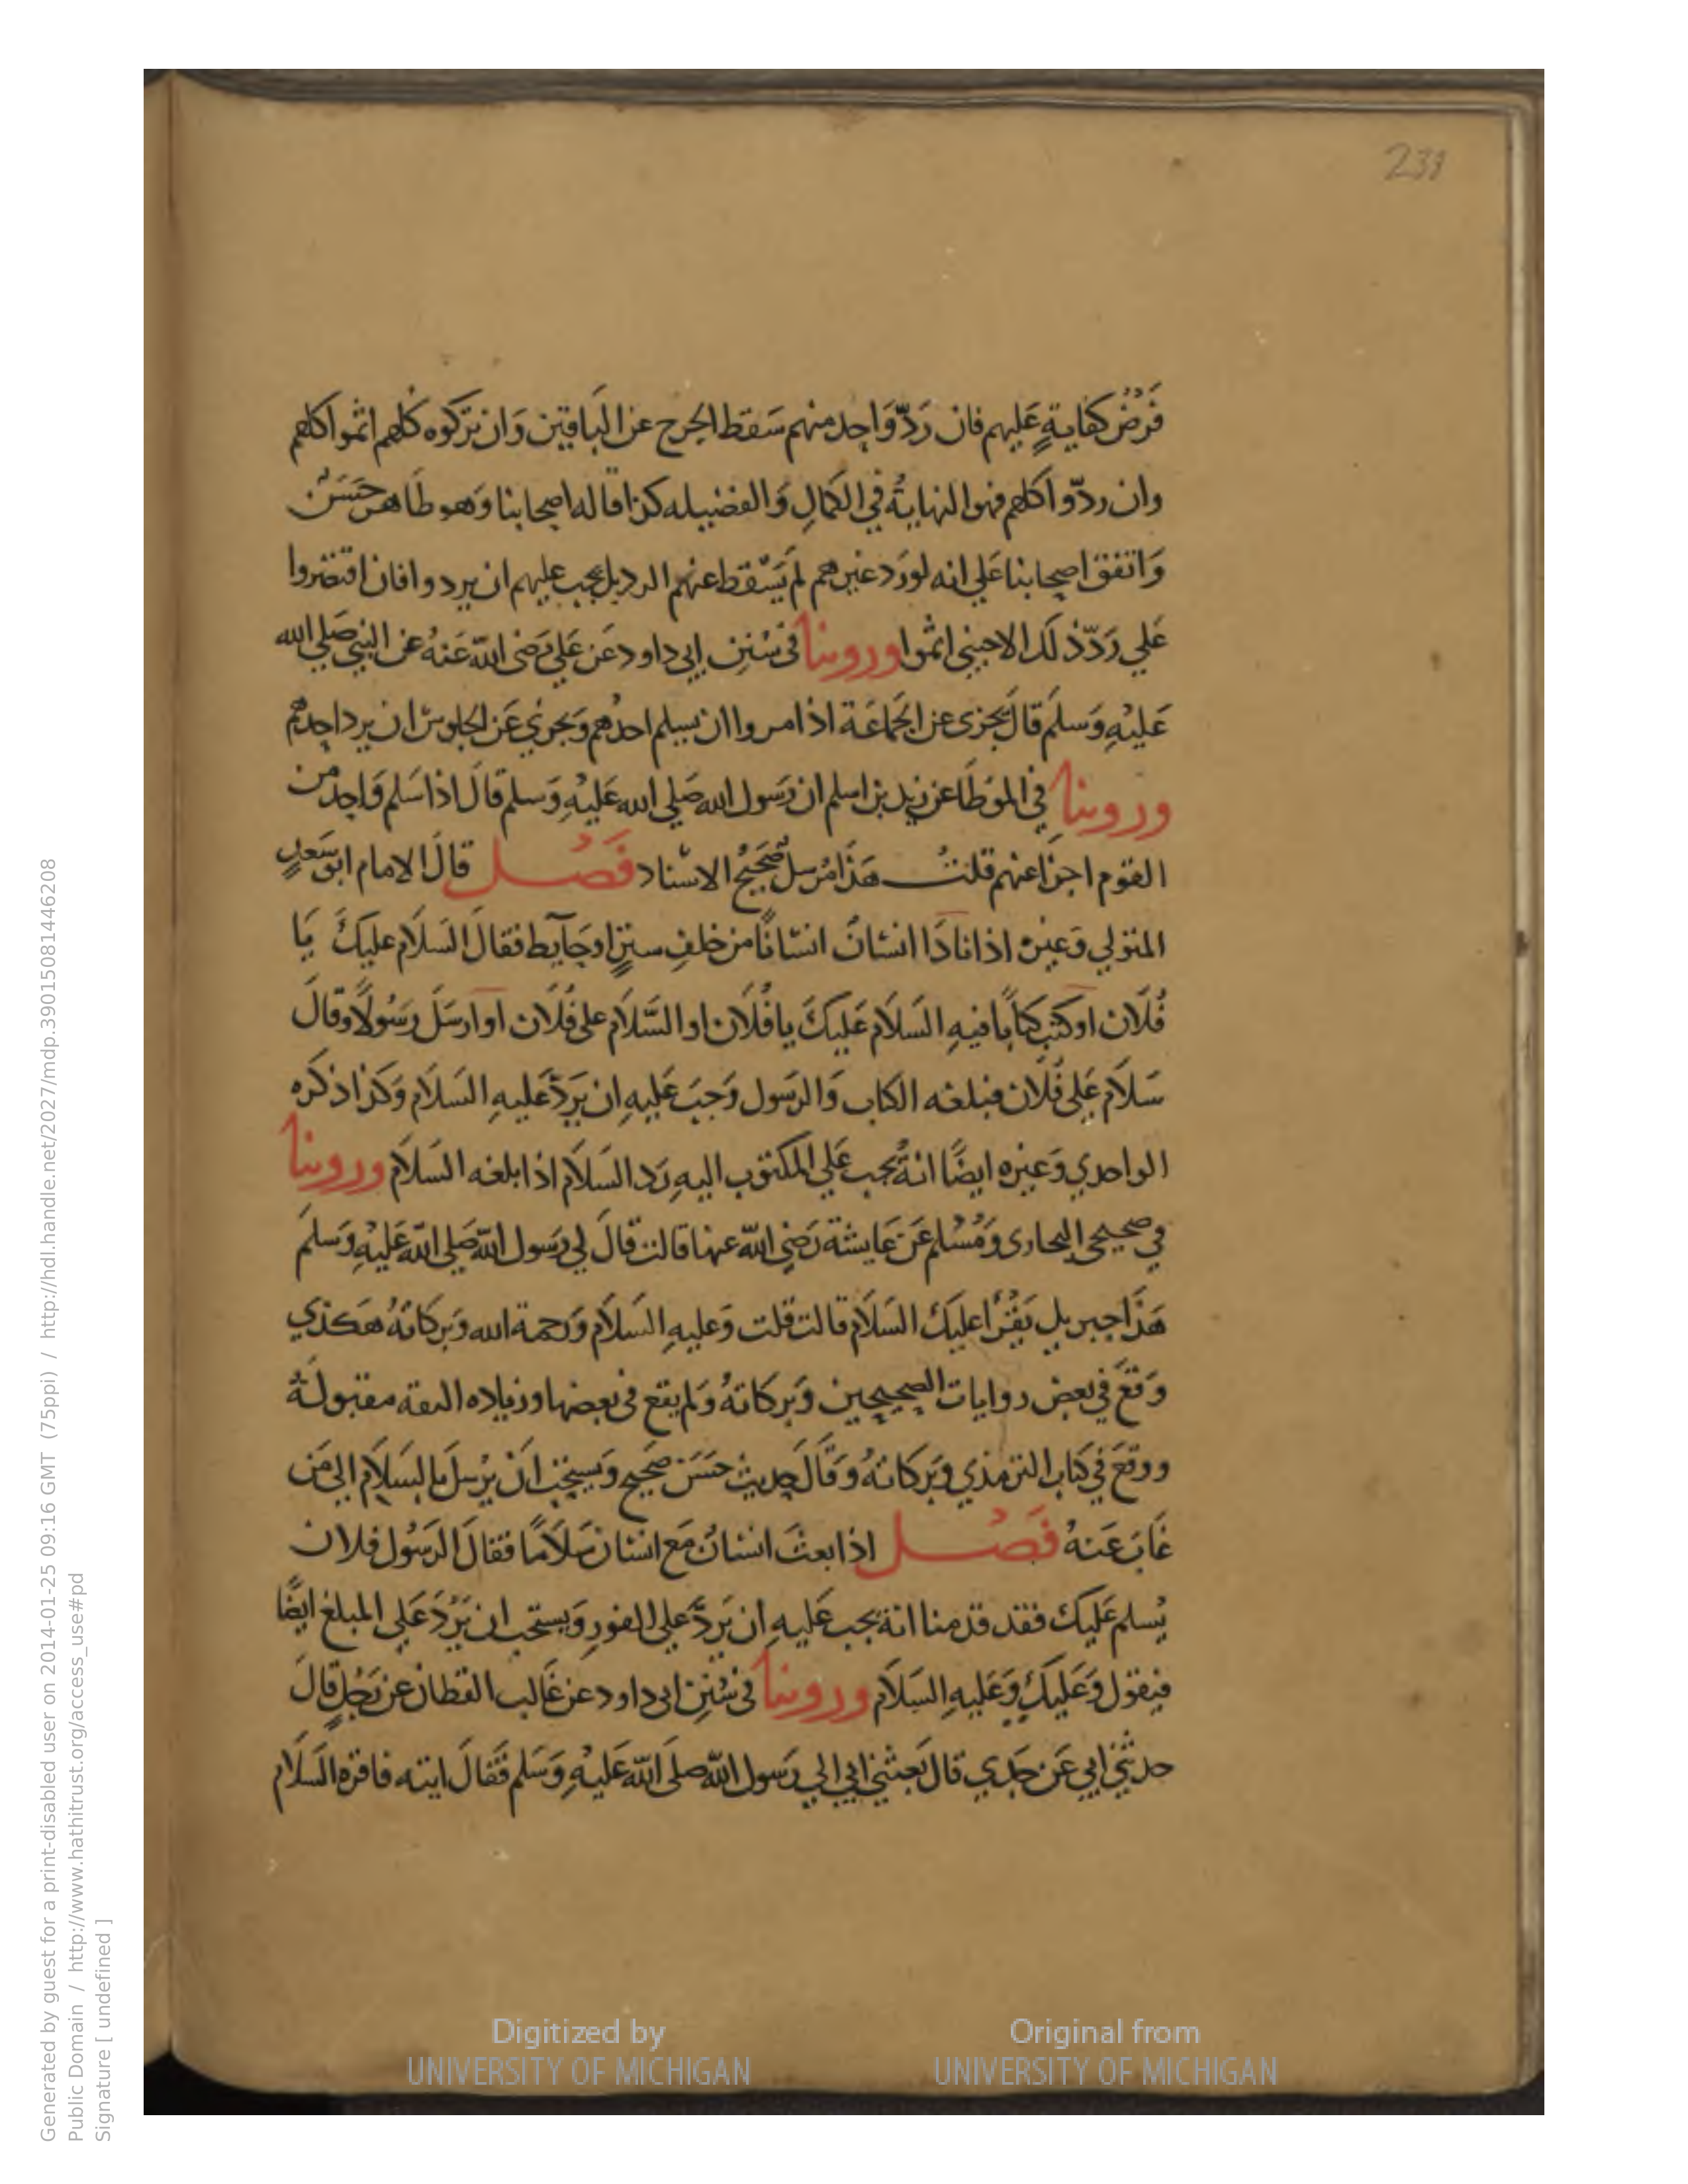 231
فَرْضُ كفَايةٍ عَليهم فان رَدّ وَاحِد منهم سَقط الحرج عن البَاقين وَان تركوه كُلهم اثموا كلهم
وان ردّوا كلهم فهو النهايَةُ في الكمالِ وَالفضيله كذا قاله اصحابنا وَهو ظاهر حَسَنٌ
وَاتفق اصحابنا عَلي انه لو رَد غيرهم لم يَسْقط عنهم الرد بل يجب عليهم ان يردوا فان اقتصروا
عَلي رَدّ ذلك الاجنبي اثموا وروينا في سُنن ابي داود عَن عَلي رَضى اللّه عَنهُ عن النبي صَلي الله
عَليْهِ وَسلم قالَ يجزى عن الجَمَاعَة اذا مروا ان يسلم احدُهم وَيجزي عَن الجلوسْ ان يرد احدهم
وروينا في الموَطَا عن زيد بن اسلم ان رَسول الله صَلي الله عَليْهِ وَسلم قالَ اذا سَلم وَاحِد من
القوم اجزا عنهم قلتُ هَذَا مُرسل صَحيحُ الاسْناد فَصْل قالَ الامام ابو سَعدٍ
المتولي وَغيره اذا نادَا انسَانٌ انسَانًا من خلفِ ستزٍ او حَآيط فقالَ السَلاَم عليكَ يَا
فُلَان او كتب كتَابًا فيهِ السَلاَم عَليكَ يا فُلَان او السَّلاَم على فُلَان او ارسَلَ رَسُولًا وقالَ
سَلاَم عَلى فُلَان فبلغه الكتاب وَالرَسول وَجبَ عَليهِ ان يَردّ عَليهِ السَلاَم وَكذا ذكره
الواحدي وَغيره ايضًا انهُ يجب عَلي المكتوب اليهِ رَد السَلاَم اذا بلغه السَلاَم وروينا
في صحيحى البخارى وَمُسْلم عَن عَايشة رَضي اللّه عنها قالت قالَ لي رَسول اللّه صَلي اللّه عَليهِ وَسلمَ
هَذَا جبريل يَقْرَا عليكَ السَلاَم قالت قلت وَعليهِ السَلاَم وَرحمة الله وَبركاتُهُ هَكذي
وَقعَ في بعض روايات الصحيحين وَبركاتهُ وَلم يقع فى بعضها وزياده الثقه مقبولَةٌ
ووقعَ في كتاب الترمذي وَبركاتهُ وَقالَ حديث حسَن صَحيح وَيستحَب ان يرْسل بالسَلاَم الى مَن
غَابَ عَنهُ فَصْل اذا بعثَ انسَانٌ مَع انسَان سَلاَمًا فقالَ الرَسُول فلان
يُسلم عَليكَ فقد قدمنا انهُ يجب عَليهِ ان يَردّ عَلي الفورِ وَيستحب ان يَرُدَ عَلي المبلغ ايضًا
فيقول وَعَليكَ وَعَليهِ السَلاَم وروينا في سُنن ابى داود عن غَالب القطان عن رَجُلٍ قالَ
حدثني ابي عَن جَدي قالَ بَعثني ابي الي رَسول اللّه صَلَى اللّه عَليْهِ وَسَلم فَقالَ ايته فاقره السَلاَم
Digitized by
UNIVERSITY OF MICHIGAN
Original from
UNIVERSITY OF MICHIGAN
Generated by guest for a print-disabled user on 2014-01-25 09:16 GMT (75ppi) / http://hdl.handle.net/2027/mdp.39015081446208
Public Domain / http://www.hathitrust.org/access_use#pd
Signature [ undefined ]